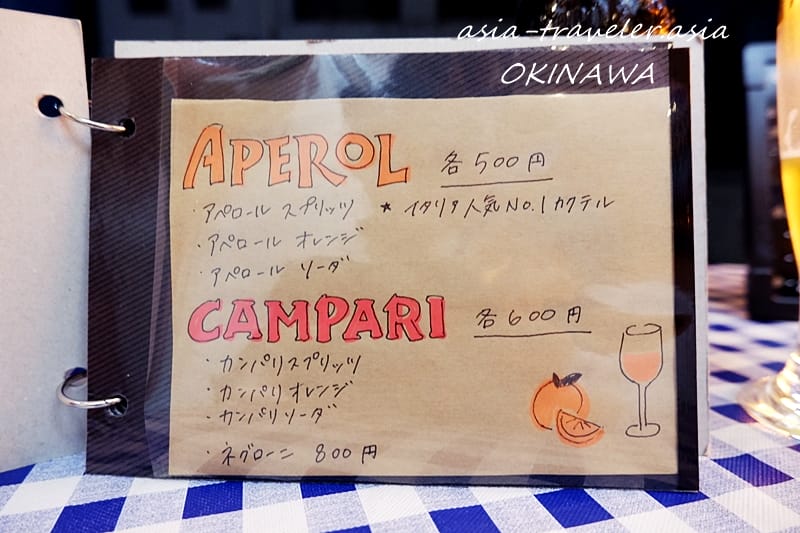 asia-traveler.asia
OKINAWA
APEROL 各500円
・アペロール スプリッツ ★イタリア人気No.1カクテル
・アペロール オレンジ
・アペロール ソーダ
CAMPARI 各600円
・カンパリスプリッツ
・カンパリオレンジ
・カンパリソーダ
・ネグローニ 800円